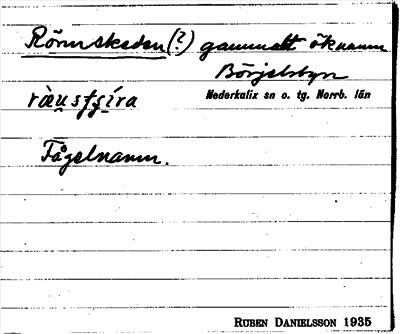 Rörmskeden (?) gammalt öknamn
Börjelsbyn
Nederkalix sn o. tg. Norrb. län
Fågelnamn.
RUBEN DANIELSSON 1935